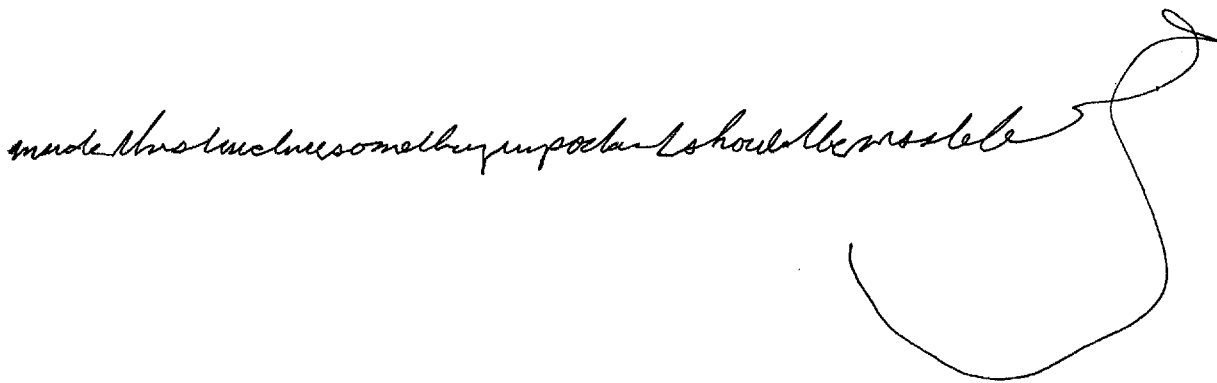 inside this structure something important should be visible